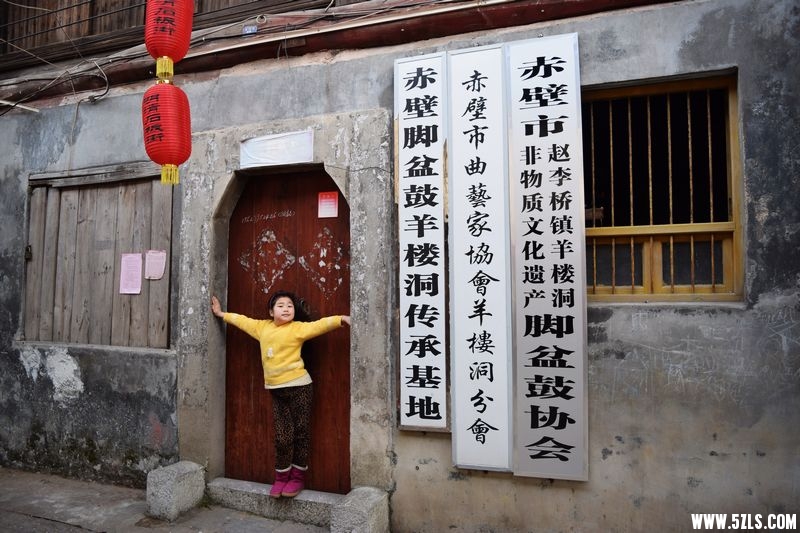 石板街
明清石板街
赤壁脚盆鼓羊楼洞传承基地
赤壁市曲藝家協會羊樓洞分會
赤壁市
赵李桥镇羊楼洞
非物质文化遗产
脚盆鼓协会
WWW.5ZLS.COM